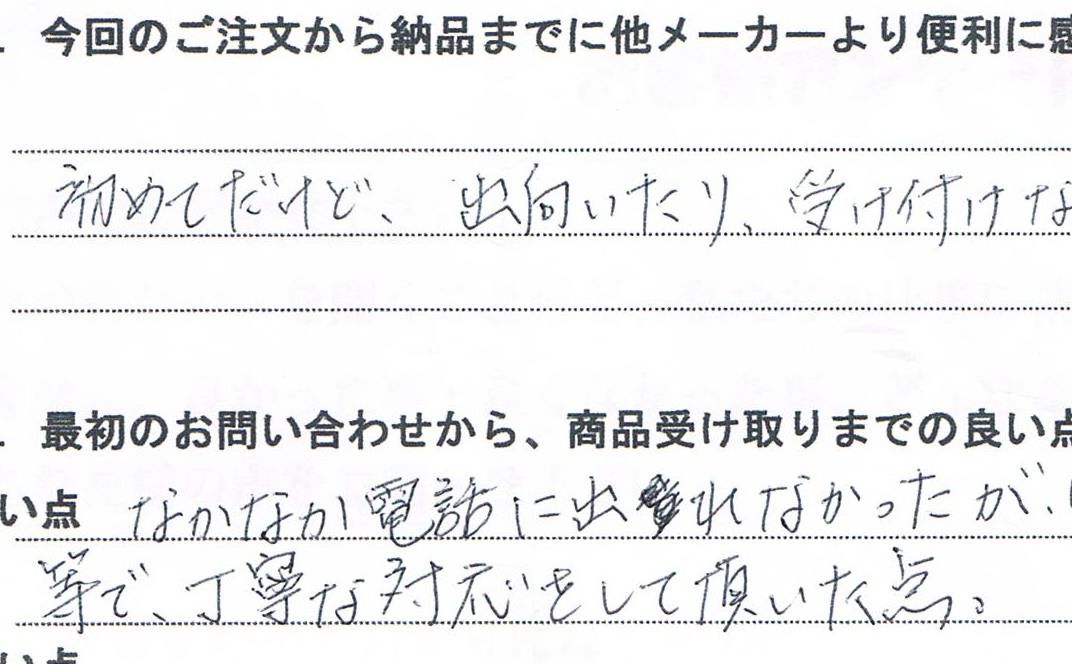 . 今回のご注文から納品までに他メーカーより便利に感
初めてだけど、出向いたり、受け付けな
. 最初のお問い合わせから、商品受け取りまでの良い点
い点 なかなか電話に出れなかったが、
等で、丁寧な対応をして頂いた点。
い点